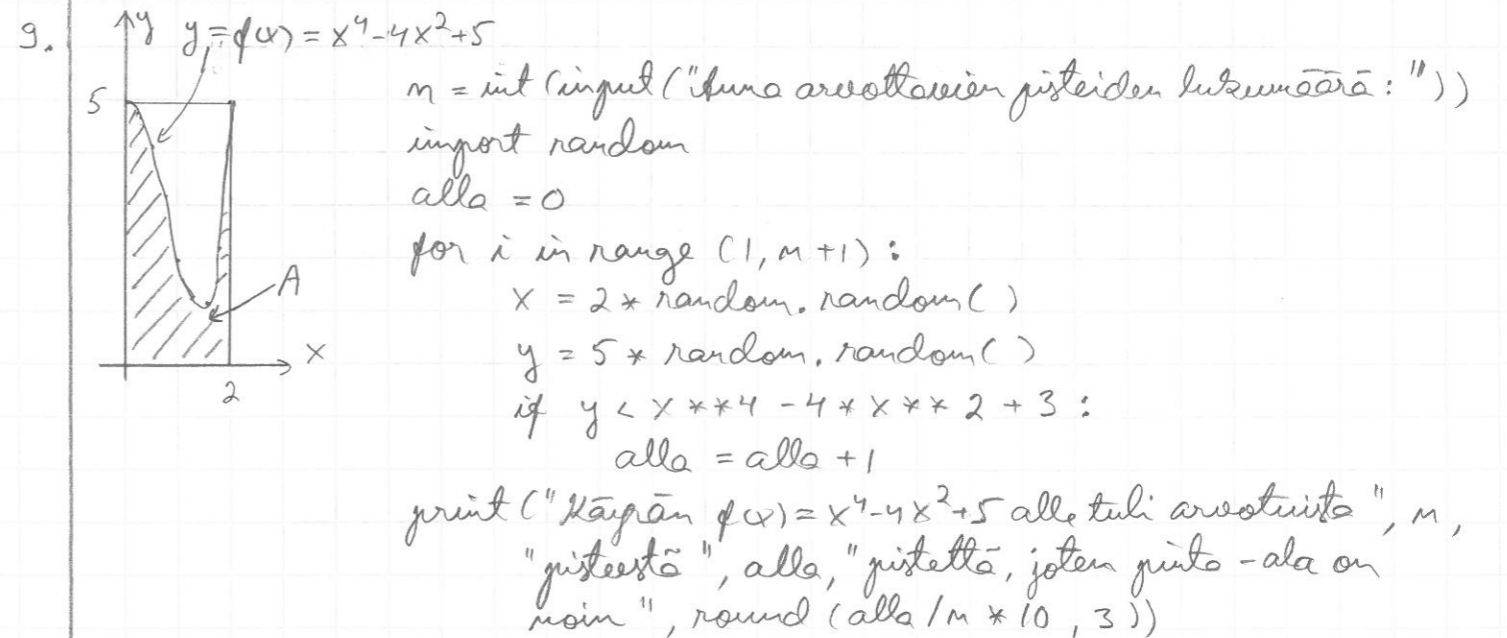 9.
y
y = f(x) = x⁴-4x²+5
5
A
x
2
n = int (input ("Anna arvottavien pisteiden lukumäärä: "))
import random
alla = 0
for i in range (1, n+1):
x = 2 * random.random( )
y = 5 * random.random( )
if y < x**4 - 4*x**2 + 3 :
alla = alla + 1
print ("Käyrän f(x) = x⁴-4x²+5 alle tuli arvotuista", n,
"pisteestä", alla, "pistettä, joten pinta-ala on
noin", round (alla/n * 10, 3))